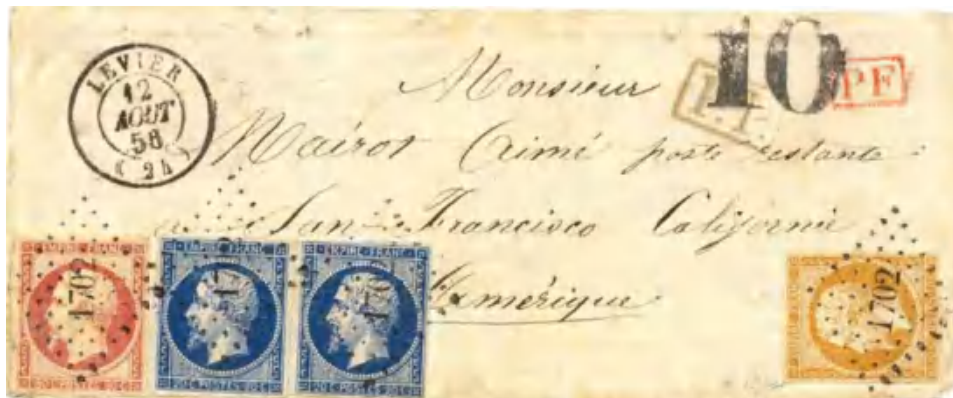 LEVIER
12
AOUT
58
(24)
10
PF
Monsieur
Mairot Aimé poste restante
San-Francisco Californie
Amérique
EMPIRE FRANC
1702
EMPIRE FRANC
17
20 C POSTES 20 C
EMPIRE FRANC
170
20 C POSTES 20 C
1702